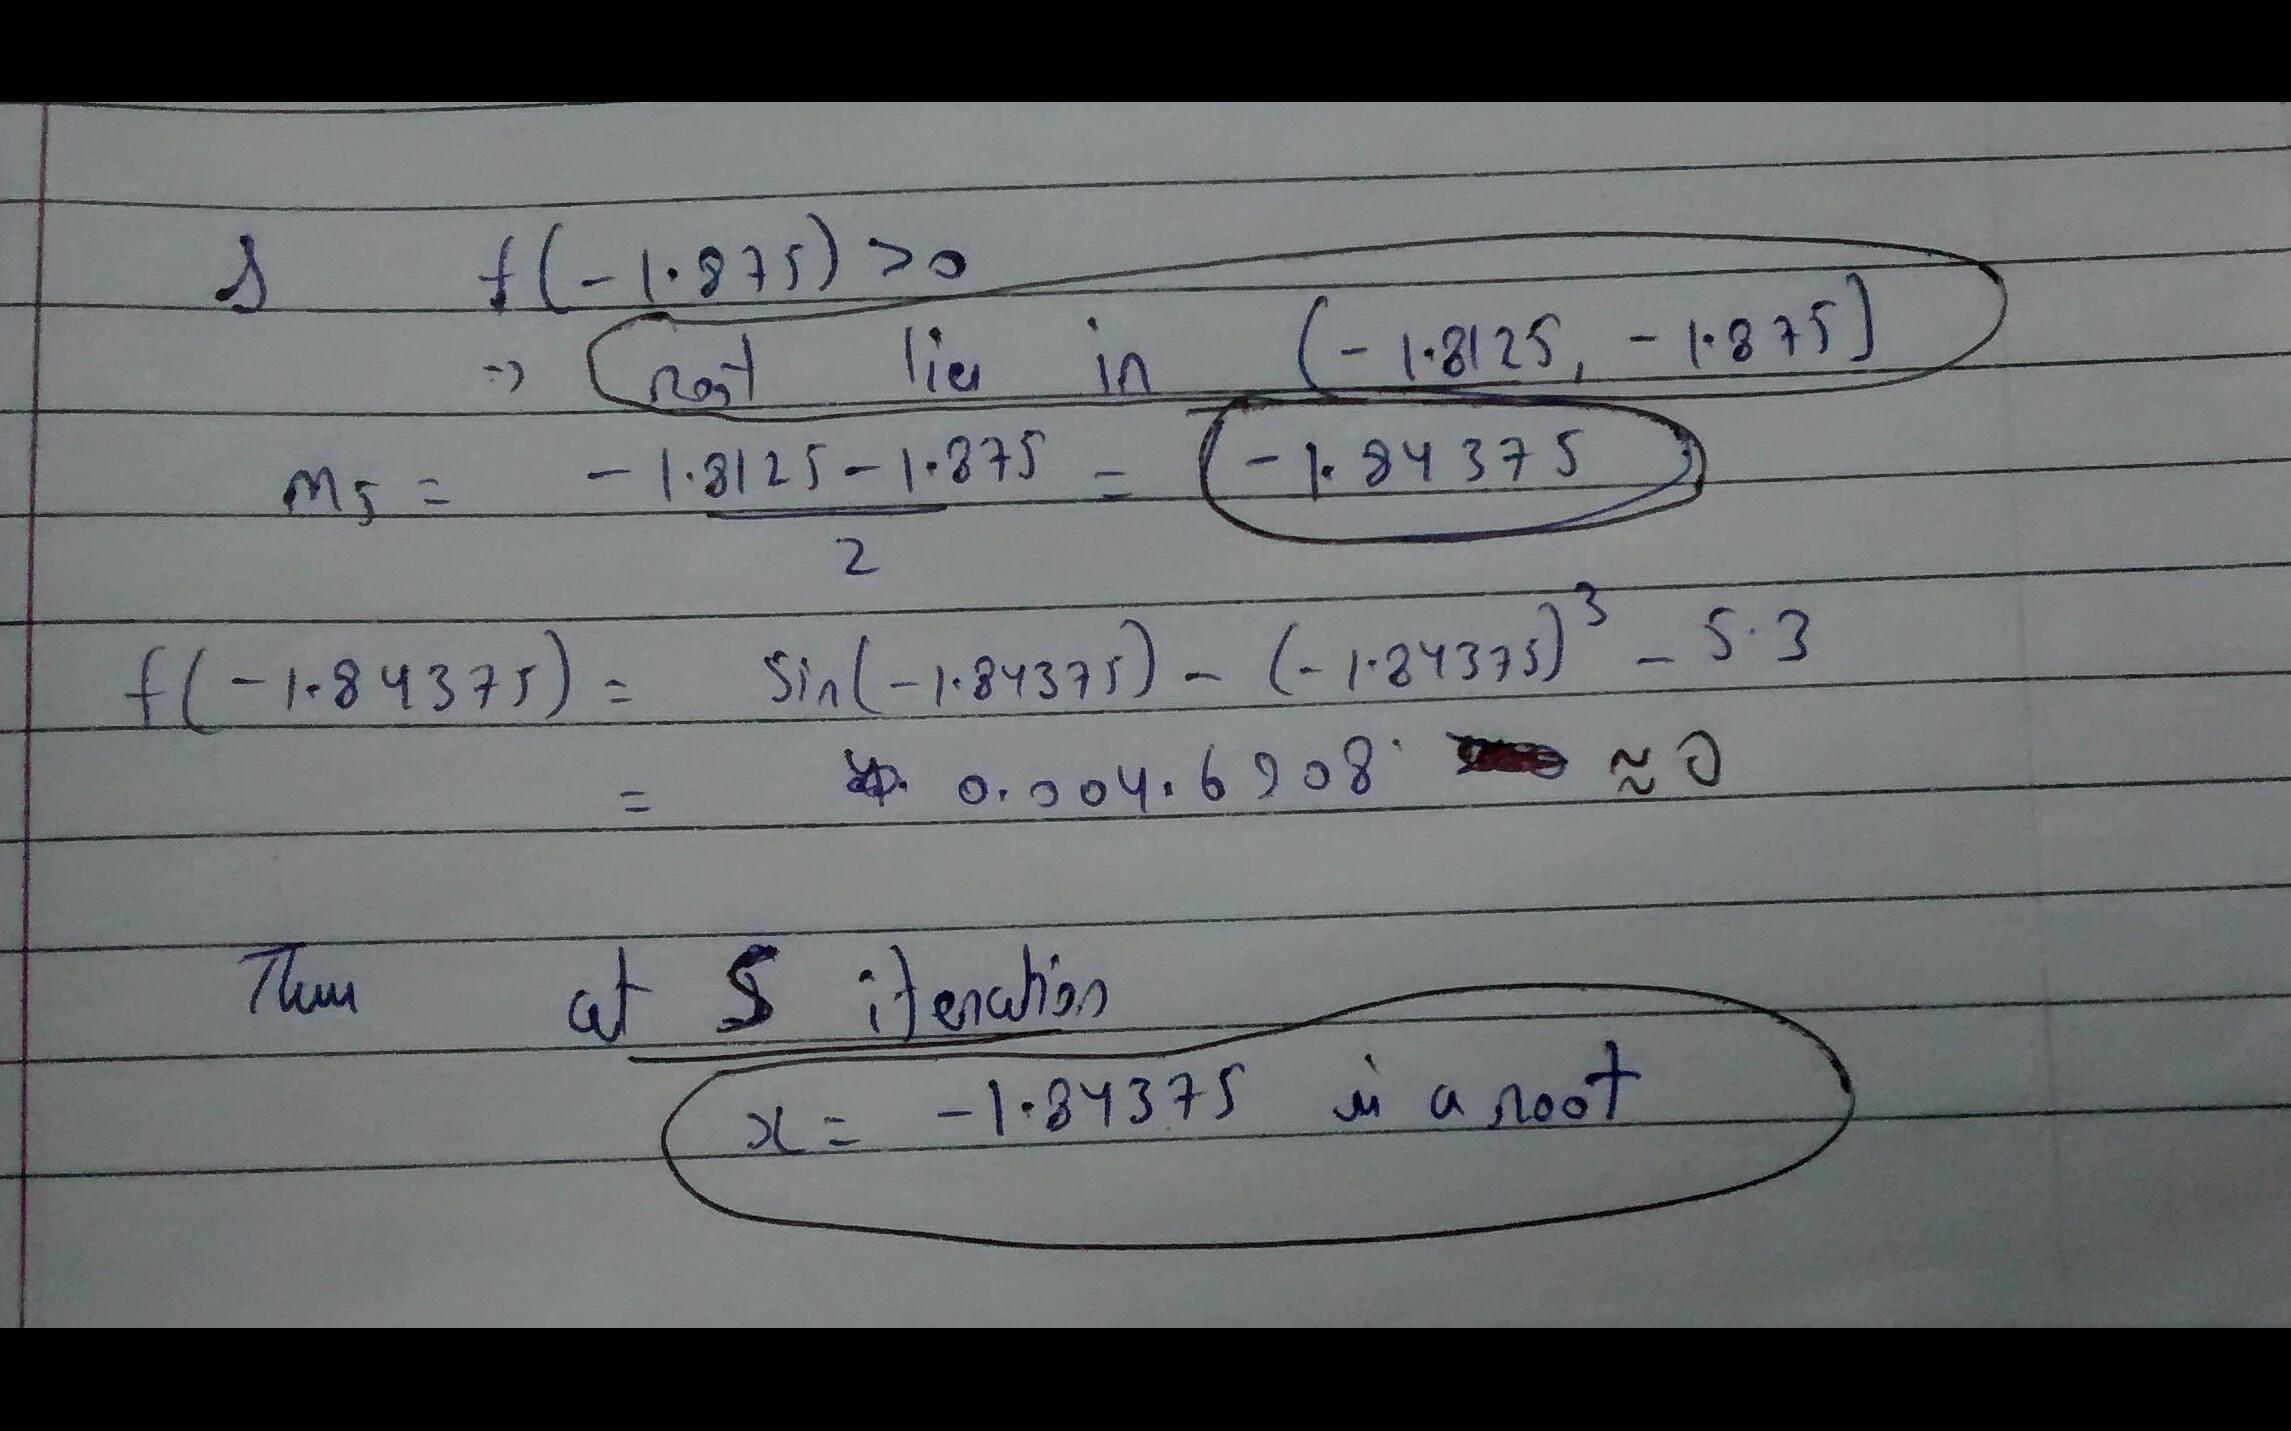 f(-1.875) > 0
⇒ root lies in (-1.8125, -1.875]
m5 = (-1.8125 - 1.875)/2 = -1.84375
f(-1.84375) = Sin(-1.84375) - (-1.84375)³ - 5.3
= 0.004.6908 ≈ 0
Thus at 5 iteration
x = -1.84375 is a root